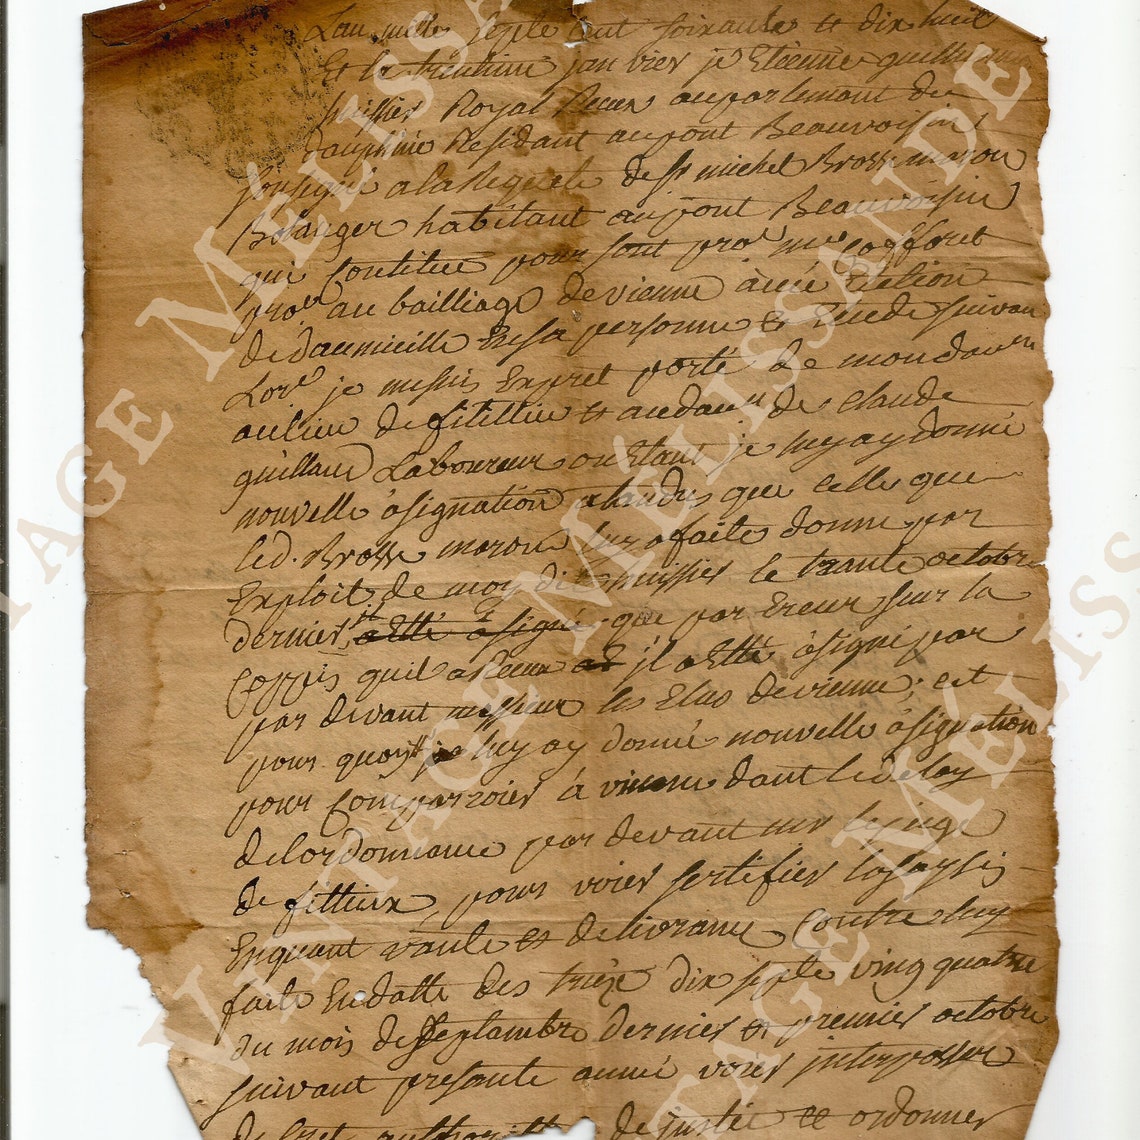 Lan mille septe cent soixante et dix huit
Et le trantieme janvier je Etienne guilherme
huissier Royal Receu auparlement du
dauphiné Residant aupont Beauvoisin
sousigné a la Requete de sr michel Brosse maron
Bolanger habitant aupont Beauvoisin
qui Constitue pour sont pror me
pror au bailliage de vienne à une Election
de daumicille En sa personne et Etude suivan
Lore je me suis Expret porté de mon dau en
au lieu de fitillieu et au dau de Claude
guillaud Laboureur ou Etant je luy ay donné
nouvelle asignation alaudus que celle que
led. Brosse maron luy a faite donne par
Exploit de moy dit huissier le trante octobre
dernier, a Etté asigné que par Ereur sur la
Coppis quil a Receu et jl a Etté asigné par
par devant messieur les Elus de vienne; est
pour quoyt je luy ay donné nouvelle asignation
pour Comparroier à vienne dant le delay
de lordonnance par devant mr le juge
de fittieux, pour voier sertifier la saysis
En quant vante et delivrance Contre luy
faite En datte des trèze dix septe vingt quatre
du mois de Septambre dernier et premier octobre
suivant presante anné voier interposser
decret authorite de justice et ordonner
VINTAGE MÉLISSANDE
VINTAGE MÉLISSANDE
VINTAGE MÉLISSANDE